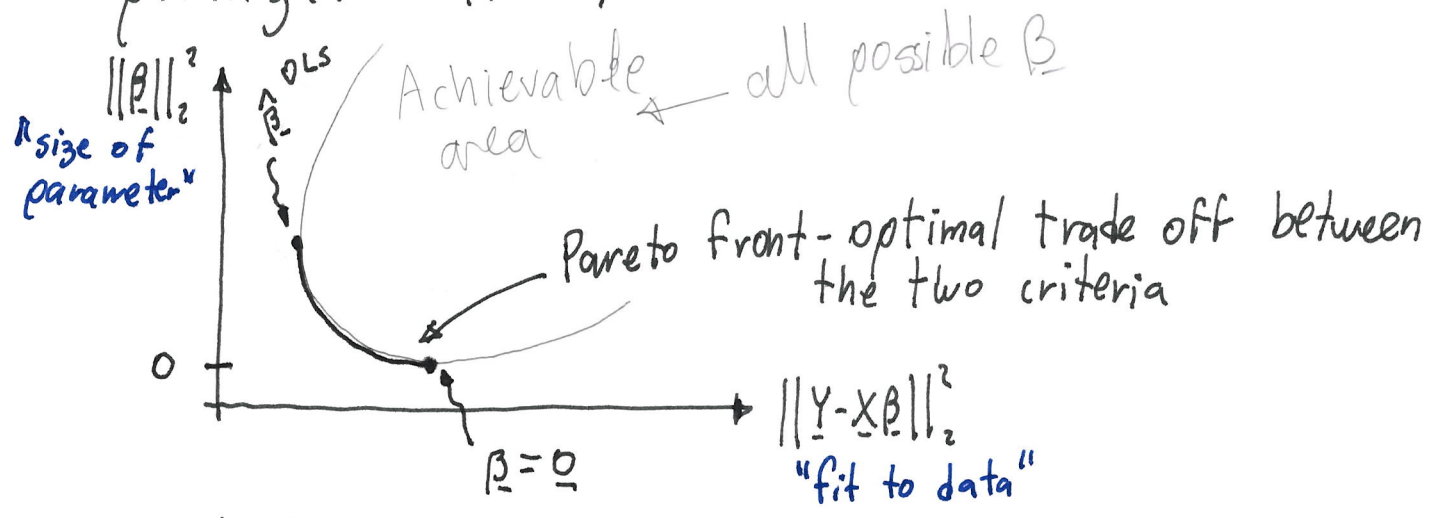 ||β||₂²
"size of
parameter"
β̂ OLS
Achievable
area
all possible β
Pareto front - optimal trade off between
the two criteria
0
||Y-Xβ||₂²
"fit to data"
β = 0